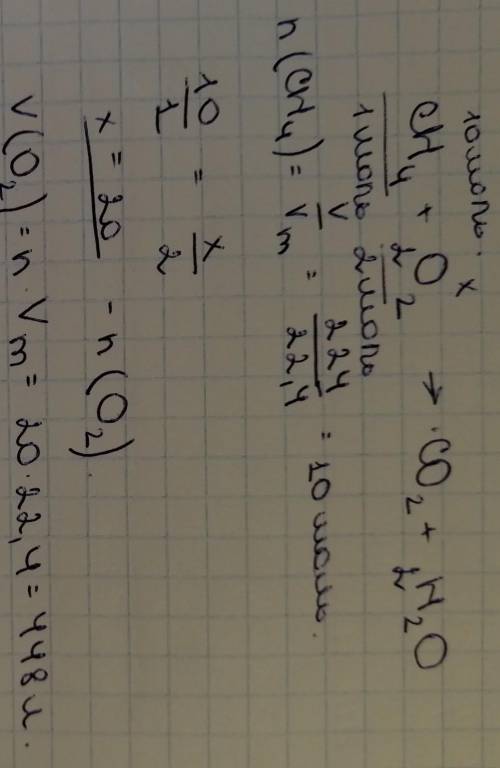 10 моль. x
CH₄ + 2O₂ → CO₂ + 2H₂O
1 моль 2 моль
n(CH₄) = V/Vm = 224/22,4 = 10 моль.
10/1 = x/2
x = 20 - n(O₂).
V(O₂) = n · Vm = 20 · 22,4 = 448 л.